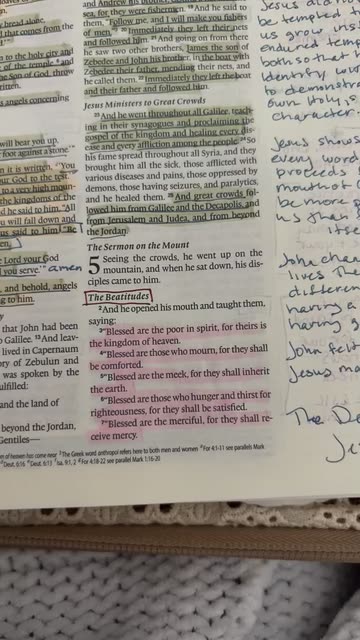 by bread alone,
that comes from the
to the holy city and
of the temple and
the Son of God, throw
written,
angels concerning
will bear you up,
foot against a stone.'"
it is written, 'You
our God to the test.'"
to a very high mountain
the kingdoms of the
And he said to him, "All
will fall down and
said to him, "Be
the Lord your God
you serve.'" amen
and behold, angels
to him.
that John had been
Galilee. And leav-
lived in Capernaum
ory of Zebulun and
was spoken by the
ulfilled:
and the land of
beyond the Jordan,
Gentiles—
and Andrew his brother,
sea, for they were fishermen. 19And he said to
them, "Follow me, and I will make you fishers
of men." 20Immediately they left their nets
and followed him. 21And going on from there
he saw two other brothers, James the son of
Zebedee and John his brother, in the boat with
Zebedee their father, mending their nets, and
he called them. 22Immediately they left the boat
and their father and followed him.
Jesus Ministers to Great Crowds
23And he went throughout all Galilee, teach-
ing in their synagogues and proclaiming the
gospel of the kingdom and healing every dis-
ease and every affliction among the people. 24So
his fame spread throughout all Syria, and they
brought him all the sick, those afflicted with
various diseases and pains, those oppressed by
demons, those having seizures, and paralytics,
and he healed them. 25And great crowds fol-
lowed him from Galilee and the Decapolis, and
from Jerusalem and Judea, and from beyond
the Jordan.
The Sermon on the Mount
5 Seeing the crowds, he went up on the
mountain, and when he sat down, his dis-
ciples came to him.
The Beatitudes
2And he opened his mouth and taught them,
saying:
3"Blessed are the poor in spirit, for theirs is
the kingdom of heaven.
4"Blessed are those who mourn, for they shall
be comforted.
5"Blessed are the meek, for they shall inherit
the earth.
6"Blessed are those who hunger and thirst for
righteousness, for they shall be satisfied.
7"Blessed are the merciful, for they shall re-
ceive mercy.
of heaven has come near 3The Greek word anthropoi refers here to both men and women For 4:1-11 see parallels Mark
Deut. 6:16 Deut. 6:13 Isa. 9:1, 2 For 4:18-22 see parallel Mark 1:16-20
Jesus
be tempted
us grow in
endured tem
both so that
Identity
to demonstra
own Holy,
character.
Jesus shows
every word
proceeds
mouth of
be more
us than
itse
John cha
lives Th
differen
having a
having
John felt
Jesus ma
The De
Je